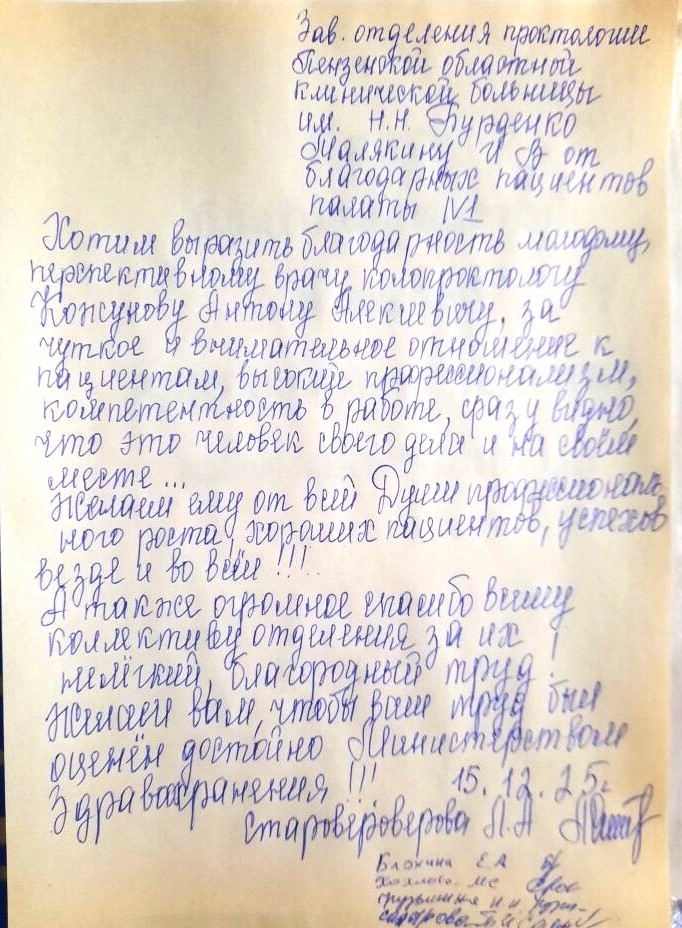 Зав. отделения проктологии
Пензенской областной
клинической больницы
им. Н.Н. Бурденко
Малякину И В от
благодарных пациентов
палаты №1
Хотим выразить благодарность молодому,
перспективному врачу колопроктологу
Кожунову Антону Алексеевичу, за
чуткое и внимательное отношение к
пациентам, высокий профессионализм,
компетентность в работе, сразу видно,
что это человек своего дела и на своём
месте...
Желаем ему от всей Души профессиональ-
ного роста, хороших пациентов, успехов
везде и во всём !!!
А также огромное спасибо всему
коллективу отделения за их
нелёгкий, благородный труд!
Желаем вам, чтобы ваш труд был
оценён достойно Министерством
Здравохранения !!! 15.12.25г.
Староверова Л.А
Блохина Е.А
Хохлова МС